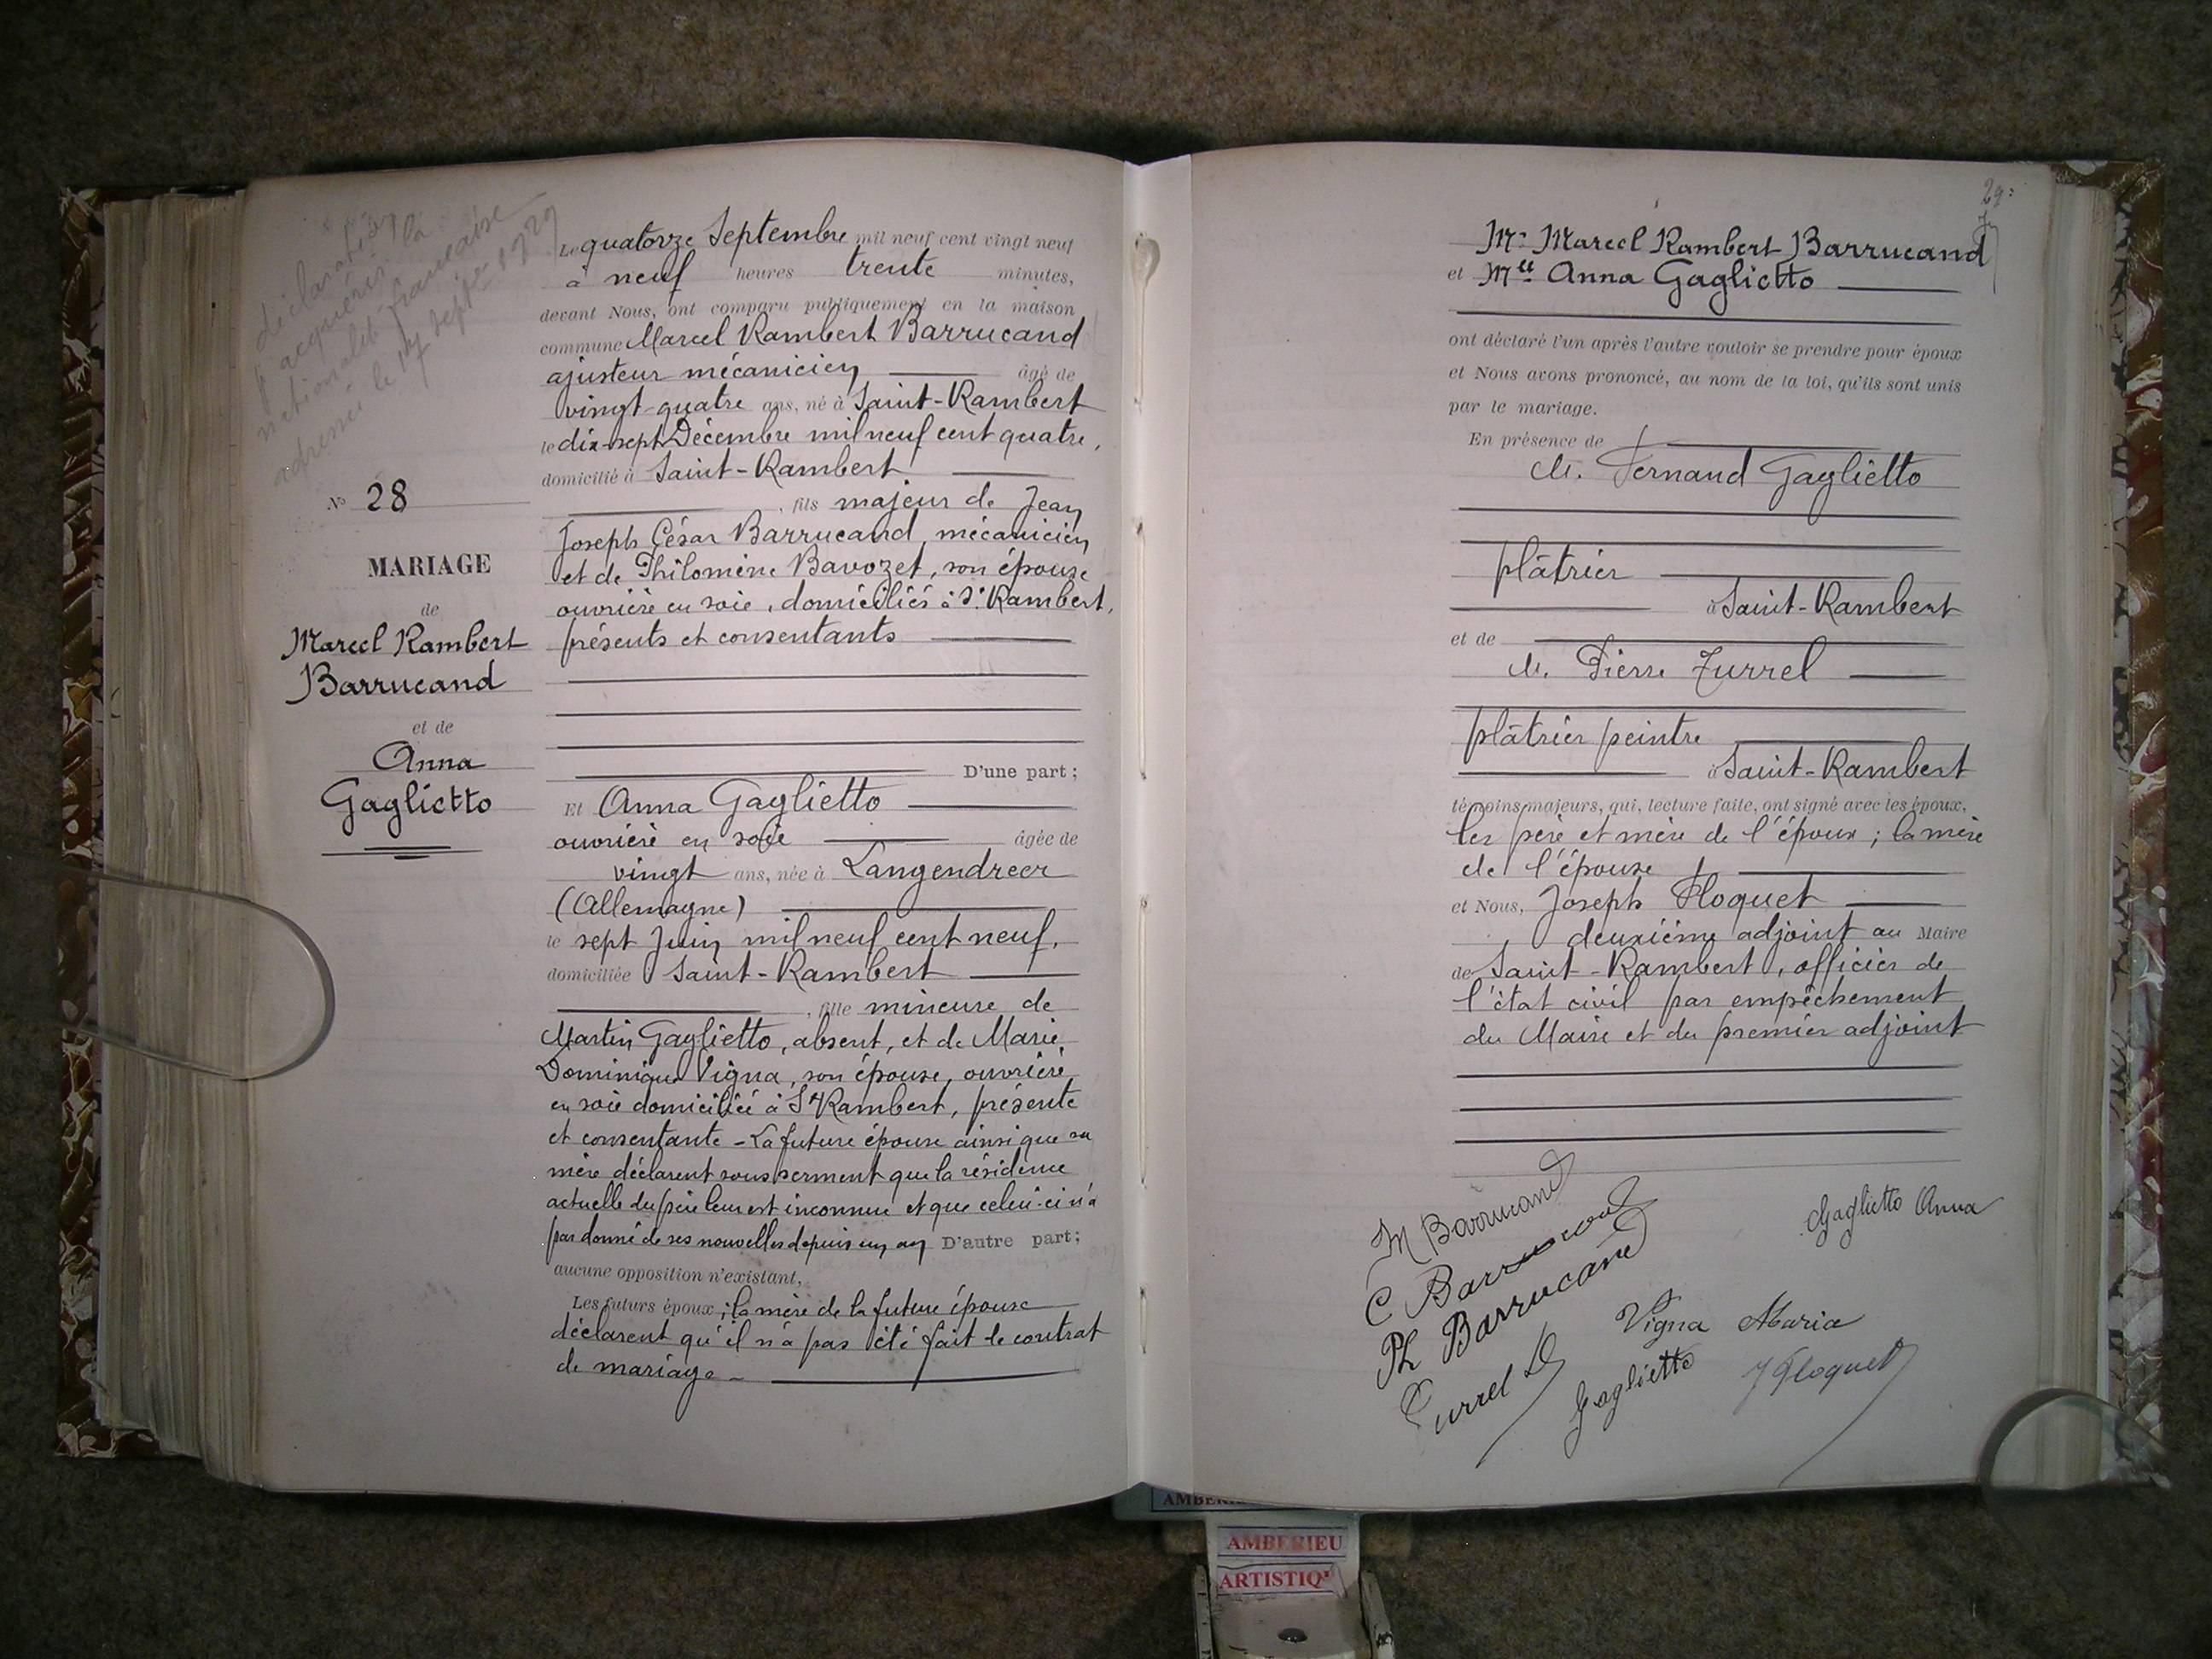 déclaration
d'acquérir la
nationalité française
adressée le 14 septe 1929
N° 28
MARIAGE
de
Marcel Rambert
Barrucand
et de
Anna
Gaglietto
Le quatorze Septembre mil neuf cent vingt neuf
à neuf heures trente minutes,
devant Nous, ont comparu publiquement en la maison
commune Marcel Rambert Barrucand
ajusteur mécanicien âgé de
vingt-quatre ans, né à Saint-Rambert
le dix-sept Décembre mil neuf cent quatre,
domicilié à Saint-Rambert
, fils majeur de Jean
Joseph César Barrucand, mécanicien
et de Philomène Bavozet, son épouse
ouvrière en soie, domiciliés à St Rambert,
présents et consentants
D'une part ;
Et Anna Gaglietto
ouvrière en soie âgée de
vingt ans, née à Langendreer
(Allemagne)
le sept Juin mil neuf cent neuf,
domiciliée Saint-Rambert
, fille mineure de
Martin Gaglietto, absent, et de Marie
Dominique Vigna, son épouse, ouvrière
en soie domiciliée à St Rambert, présente
et consentante - La future épouse ainsi que sa
mère déclarent sous serment que la résidence
actuelle du père leur est inconnue et que celui-ci n'a
pas donné de ses nouvelles depuis un an D'autre part ;
aucune opposition n'existant,
Les futurs époux ; la mère de la future épouse
déclarent qu'il n'a pas été fait de contrat
de mariage -
29:
Mr Marcel Rambert Barrucand
et Mlle Anna Gaglietto
ont déclaré l'un après l'autre vouloir se prendre pour époux
et Nous avons prononcé, au nom de la loi, qu'ils sont unis
par le mariage.
En présence de
M. Fernand Gaglietto
plâtrier
à Saint-Rambert
et de
M. Pierre Turrel
plâtrier peintre
à Saint-Rambert
témoins majeurs, qui, lecture faite, ont signé avec les époux,
les père et mère de l'époux ; la mère
de l'épouse
et Nous, Joseph Floquet
deuxième adjoint au Maire
de Saint-Rambert, officier de
l'état civil par empêchement
du Maire et du premier adjoint
M Barrucand
Gaglietto Anna
C Barrucand
Ph Barrucand
Vigna Maria
Turrel
Gaglietto
J Floquet
AMBERIEU
ARTISTIQ